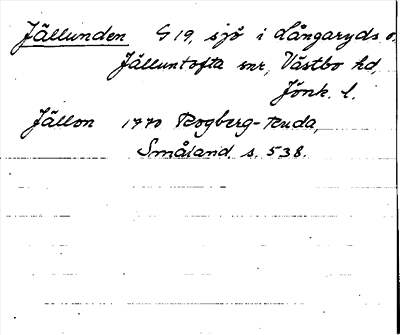 Jällunden G 19, sjö i Långaryds o.
Jälluntofta snr, Västbo hd,
Jönk. l.
Jällon 1770 Rogberg-Ruda,
Småland s. 538.